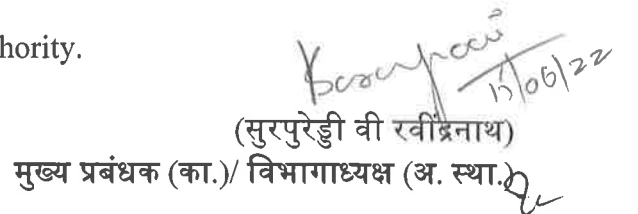 hority.
/06/22
(सुरपुरेड्डी वी रवींद्रनाथ)
मुख्य प्रबंधक (का.)/ विभागाध्यक्ष (अ. स्था.)